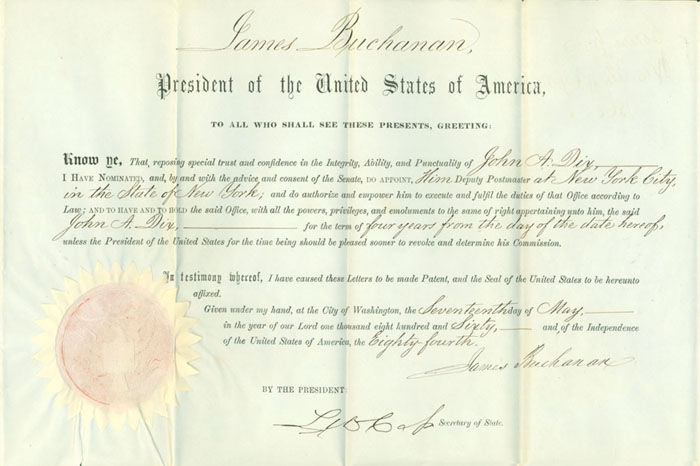 James Buchanan,
President of the United States of America,
TO ALL WHO SHALL SEE THESE PRESENTS, GREETING:
Know ye, That, reposing special trust and confidence in the Integrity, Ability, and Punctuality of John A. Dix,
I HAVE NOMINATED, and, by and with the advice and consent of the Senate, DO APPOINT, Him Deputy Postmaster at New York City,
in the State of New York; and do authorize and empower him to execute and fulfil the duties of that Office according to
Law; AND TO HAVE AND TO HOLD the said Office, with all the powers, privileges, and emoluments to the same of right appertaining unto him, the said
John A. Dix, for the term of four years from the day of the date hereof,
unless the President of the United States for the time being should be pleased sooner to revoke and determine his Commission.
In testimony whereof, I have caused these Letters to be made Patent, and the Seal of the United States to be hereunto
affixed.
Given under my hand, at the City of Washington, the Seventeenth day of May,
in the year of our Lord one thousand eight hundred and Sixty, and of the Independence
of the United States of America, the Eighty fourth.
James Buchanan
BY THE PRESIDENT:
Secretary of State.